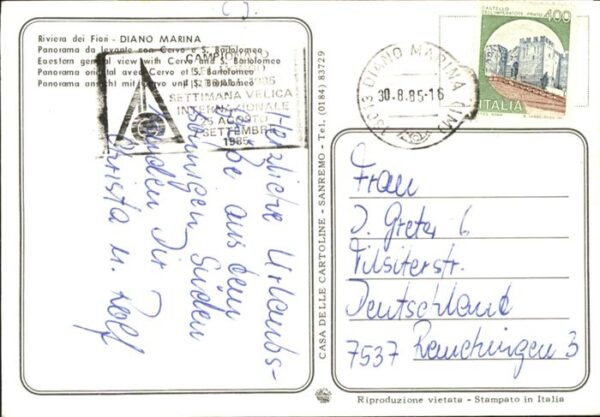 Riviera dei Fiori - DIANO MARINA
Panorama da levante con Cervo e S. Bartolomeo
Eaestern general view with Cervo and S. Bartolomeo
Panorama oriental avec Cervo et S. Bartolomeo
Panorama ansicht mit Cervo und S. Bartolomeo
CAMPIONATO
SETTIMANA VELICA
INTERNAZIONALE
AGOSTO
SETTEMBRE
1985
Herzliche Urlaubs-
grüße aus dem
sonnigen Süden
senden Dir
Christa u. Rolf
CASA DELLE CARTOLINE - SANREMO - Tel. (0184) 83729
18013 DIANO MARINA (IM)
30.8.85-16
CASTELLO
DELL'IMPERATORE PRATO
400
ITALIA
Frau
J. Greter 6
Tilsiterstr.
Deutschland
7537 Remchingen 3
Riproduzione vietata - Stampato in Italia